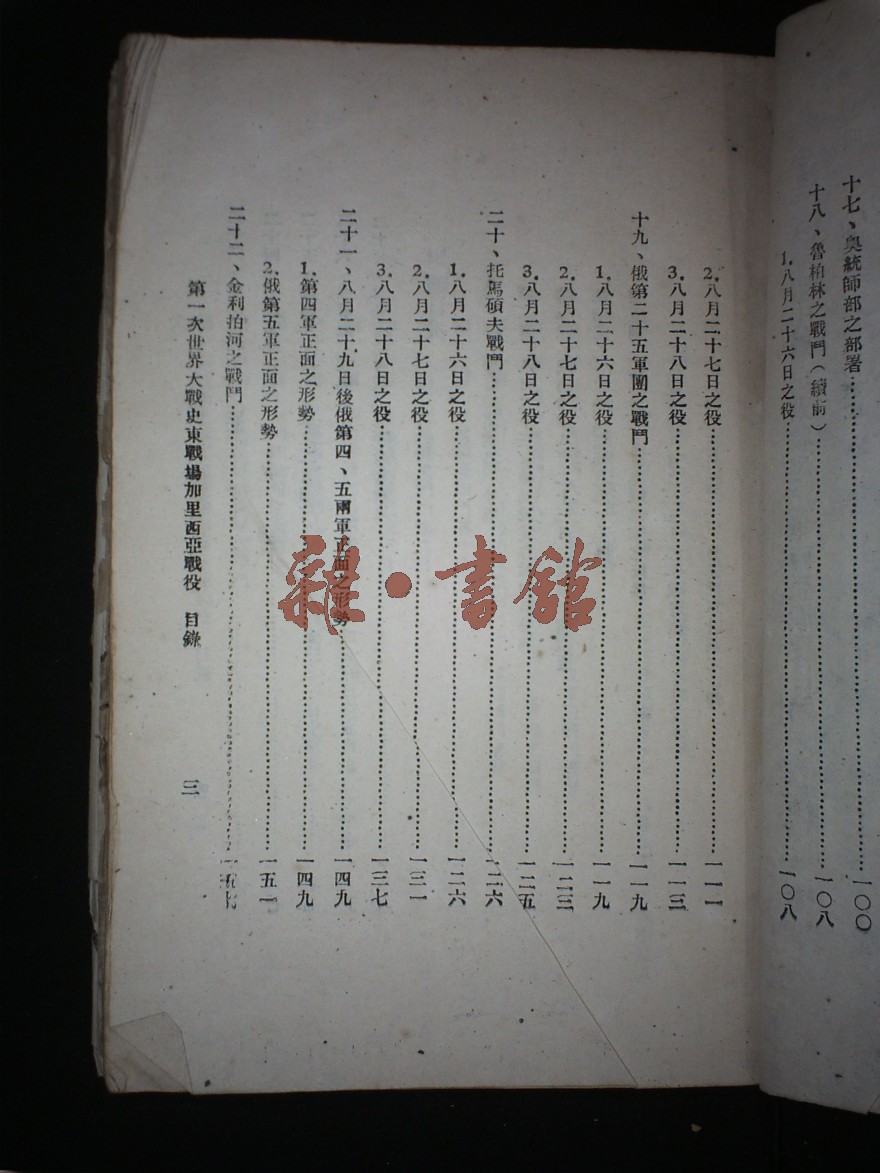 十七、奧統帥部之部署……………一〇〇
十八、魯柏林之戰鬥（續前）……………一〇八
1.八月二十六日之役……………一〇八
2.八月二十七日之役……………一一一
3.八月二十八日之役……………一一三
十九、俄第二十五軍團之戰鬥……………一一九
1.八月二十六日之役……………一一九
2.八月二十七日之役……………一二三
3.八月二十八日之役……………一二五
二十、托馬碩夫戰鬥……………一二六
1.八月二十六日之役……………一二六
2.八月二十七日之役……………一三一
3.八月二十八日之役……………一三七
二十一、八月二十九日後俄第四、五兩軍正面之形勢……………一四九
1.第四軍正面之形勢……………一四九
2.俄第五軍正面之形勢……………一五一
二十二、金利拍河之戰鬥……………一五七
第一次世界大戰史東戰場加里西亞戰役 目錄
三
雜·書館